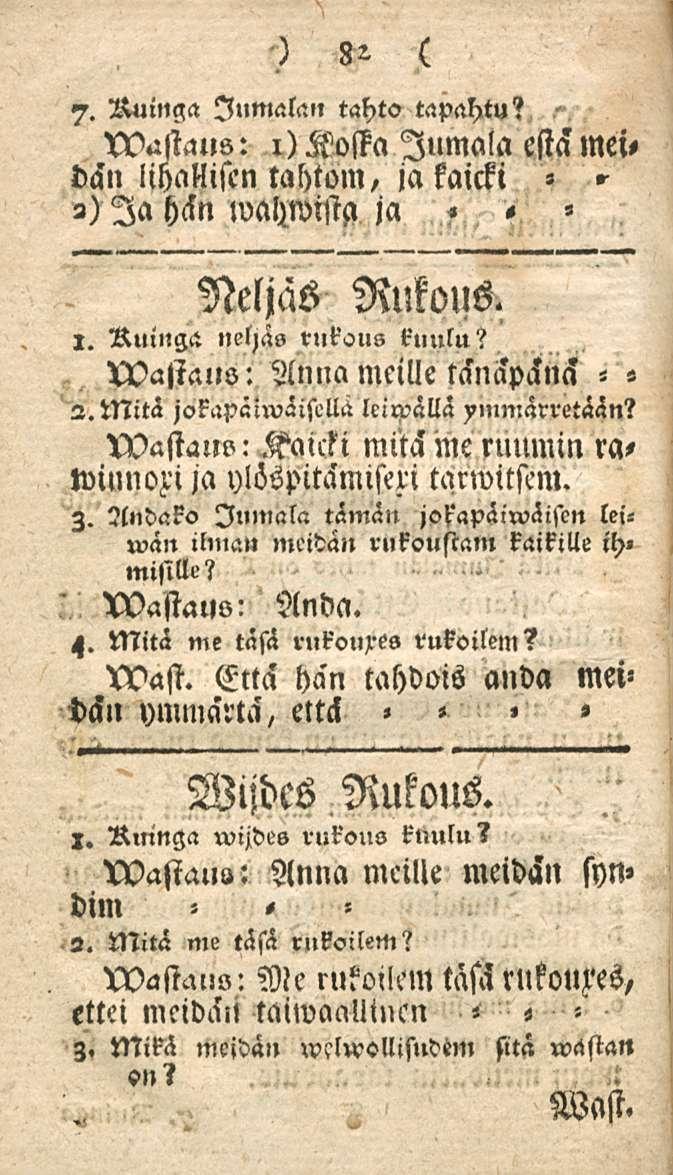 ) 82 (
7. Kuinga Jumalan tahto tapahtu?
Wastaus: 1) Koska Jumala estä mei⸗
dän lihallisen tahtom, ja kaicki ⸗ ⸗
2) Ja hän wahwista ja ⸗ ⸗ ⸗
Neljäs Rukous.
1. Kuinga neljäs rukous kuulu?
Wastaus: Anna meille tänäpänä ⸗ ⸗
2. Mitä jokapäiwäisellä leiwällä ymmärretään?
Wastaus: Kaicki mitä me ruumin ra⸗
winnoxi ja ylöspitämisexi tarwitsem.
3. Andako Jumala tämän jokapäiwäisen lei⸗
wän ilman meidän rukoustam kaikille ih⸗
misille?
Wastaus: Anda.
4. Mitä me täsä rukouxes rukoilem?
Wast. Että hän tahdois anda mei⸗
dän ymmärtä, että ⸗ ⸗ ⸗ ⸗
Wijdes Rukous.
1. Kuinga wijdes rukous kuulu?
Wastaus: Anna meille meidän syn⸗
dim ⸗ ⸗ ⸗
2. Mitä me täsä rukoilem?
Wastaus: Me rukoilem täsä rukouxes,
ettei meidän taiwaallinen ⸗ ⸗ ⸗
3. Mikä meidän welwollisudem sitä wastan
on?
Wast.